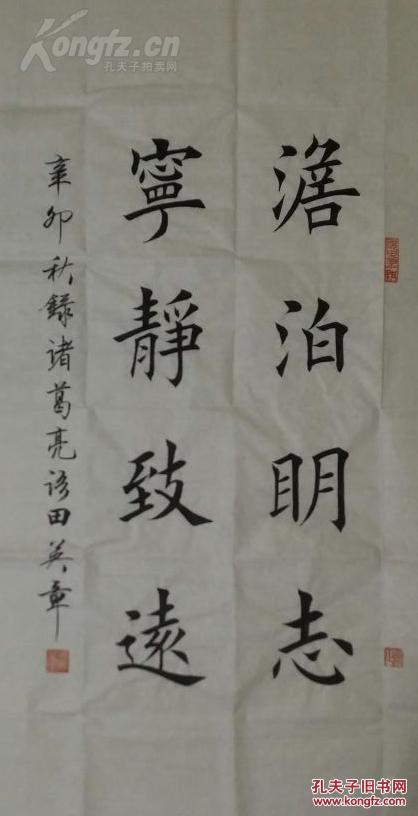 Kongfz.cn
孔夫子拍卖网
澹泊明志
寧靜致遠
辛卯秋録诸葛亮语田英章
孔夫子旧书网
www.kongfz.com